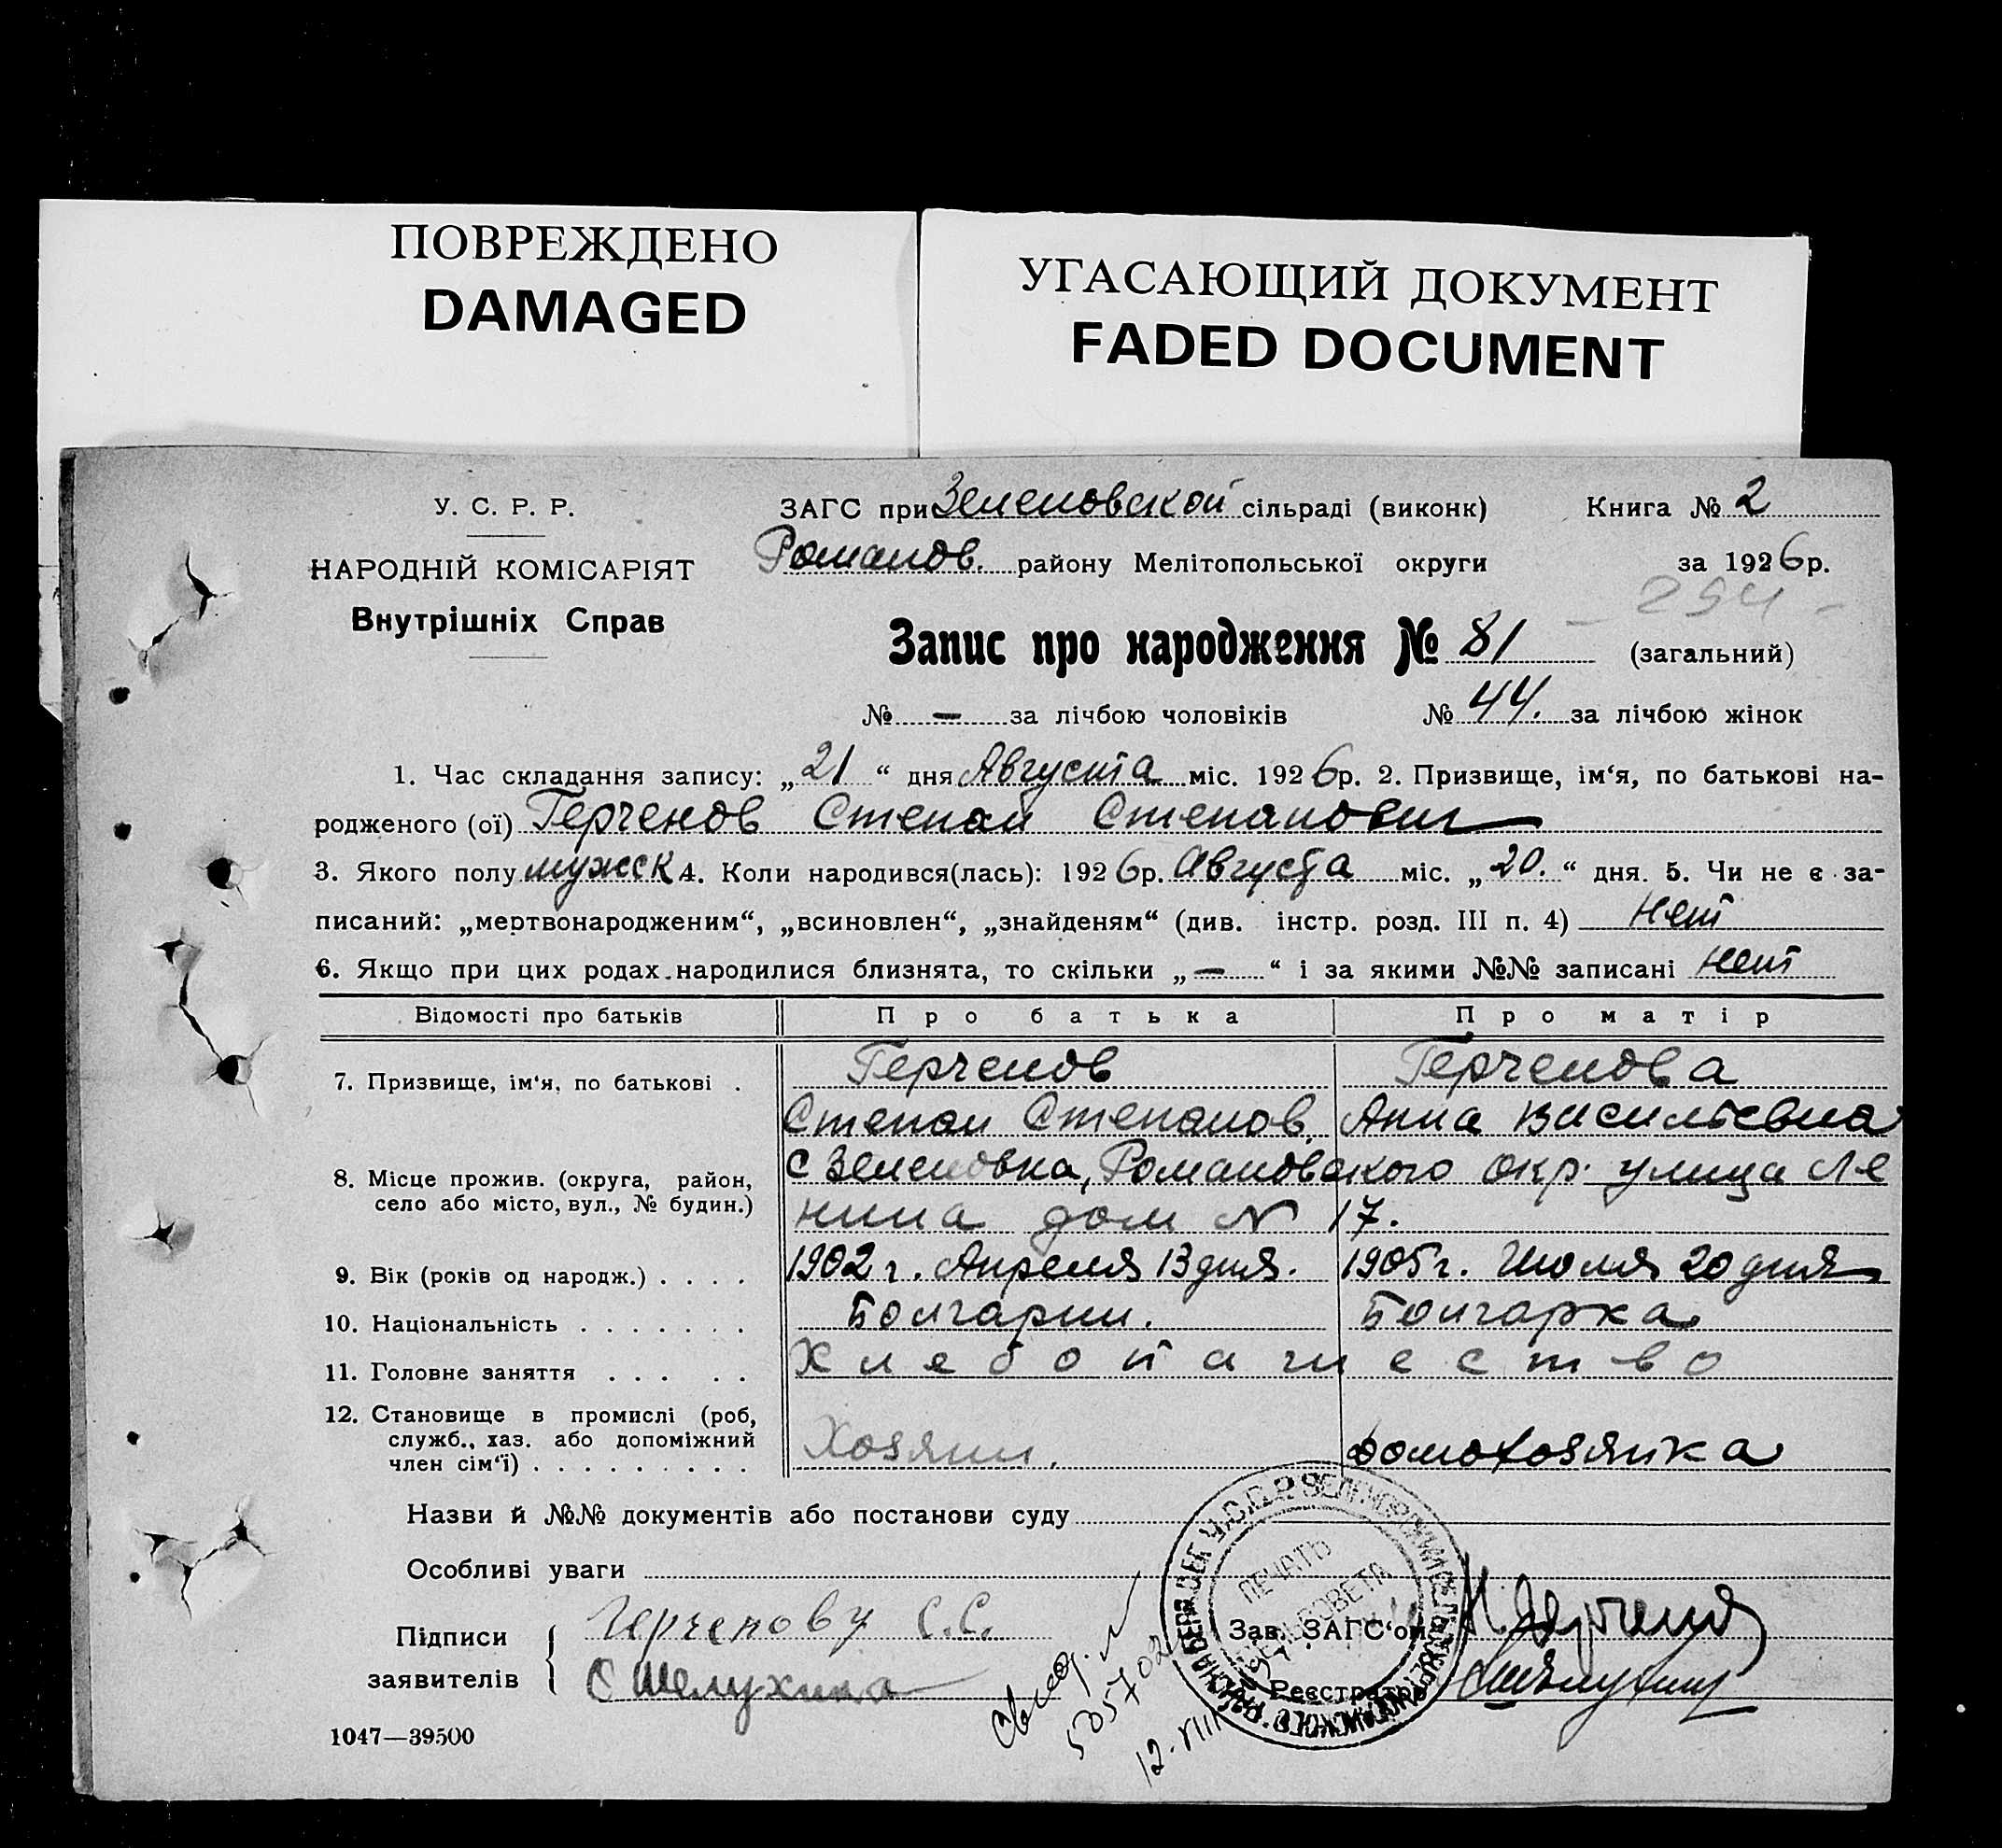 ПОВРЕЖДЕНО
DAMAGED
УГАСАЮЩИЙ ДОКУМЕНТ
FADED DOCUMENT
У. С. Р. Р.
НАРОДНІЙ КОМІСАРІЯТ
Внутрішніх Справ
ЗАГС при Зеленовской сільраді (виконк)
Книга № 2
Романов. району Мелітопольської округи
за 1926 р.
294
Запис про народження № 81 (загальний)
№ — за лічбою чоловіків № 44. за лічбою жінок
1. Час складання запису: „21“ дня Августа міс. 1926 р. 2. Призвище, ім‘я, по батькові на-
родженого (ої) Герченов Степан Степанович
3. Якого полу мужск 4. Коли народився(лась): 1926 р. Августа міс. „20.“ дня. 5. Чи не є за-
писаний: „мертвонародженим“, „всиновлен“, „знайденям“ (див. інстр. розд. III п. 4) Нет
6. Якщо при цих родах народилися близнята, то скільки „—“ і за якими №№ записані нет
Відомості про батьків Про батька Про матір
7. Призвище, ім‘я, по батькові . Герченов Герченова
Степан Степанов. Анна Васильевна
8. Місце прожив. (округа, район,
село або місто, вул., № будин.)
с Зеленовка, Романовского окр. улица Ле
нина дом N 17.
9. Вік (років од народж.) . . . . 1902 г. Апреля 13 дня. 1905 г. Июля 20 дня
10. Національність . . . . . . . Болгарин. Болгарка
11. Головне заняття . . . . . Хлебопашество
12. Становище в промислі (роб,
служб., хаз. або допоміжний
член сім‘ї) . . . . . . . . . Хозяин. домохозяйка
Назви й №№ документів або постанови суду
Особливі уваги
Підписи
заявителів
Герченову С.С.
С Шелухина
Зав. ЗАГС‘ом
Реєстратор
У.С.С.Р
ПЕЧАТЬ
СЕЛЬСОВЕТА
12. VIII
1047—39500